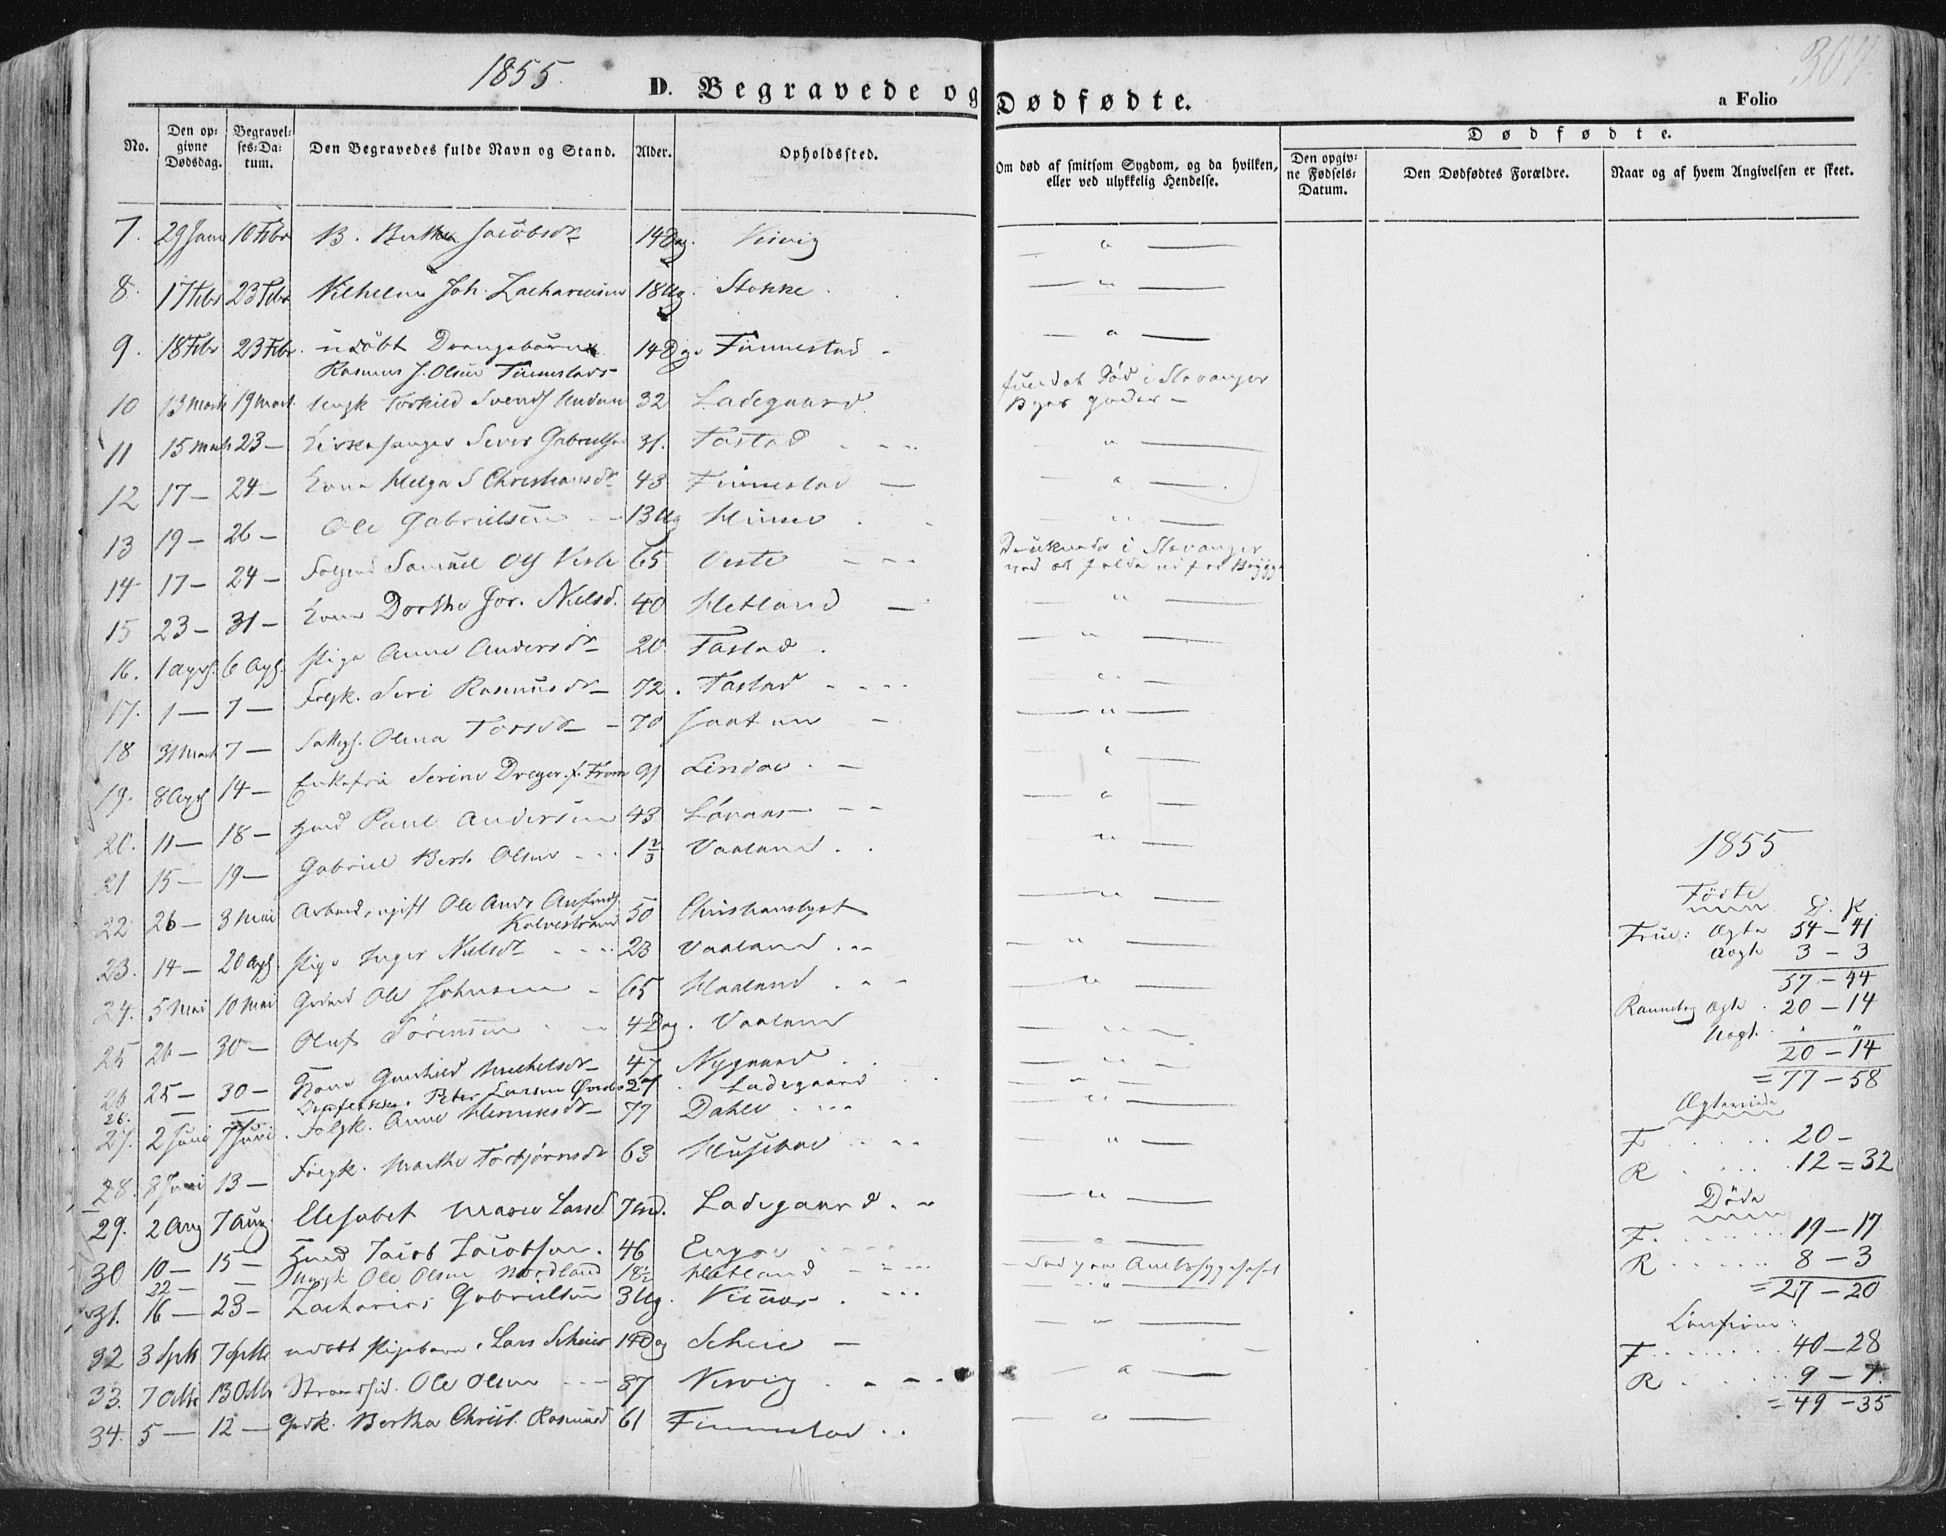 1855.
D. Begravede og Dødfødte.
304
a Folio
No.
Den opgivne Dødsdag.
Begravelses-Datum.
Den Begravedes fulde Navn og Stand.
Alder.
Opholdssted.
Om død af smitsom Sygdom, og da hvilken, eller ved ulykkelig Hendelse.
Dødfødte.
Den opgivne Fødsels-Datum.
Den Dødfødtes Forældre.
Naar og af hvem Angivelsen er skeet.
7. 29 Janu 10 Febr B. Berthe Jacobsdr 14 Dag.
8. 17 Febr 23 Febr Vilhelm Joh. Zachariasen 18 Ug. Stokke
9. 18 Febr 23 Febr. udøbt Drengebarn 14 Dg. Finnestad
Rasmus J. Olsen Finnestads
10 13 Marts 19 Mart. Ungk Torkild Svends 32 Ladegaard
funden død i Stavanger
Byes gader
11 15 Marts 23 — Kirkesanger Siver Gabrielsen 31. Tastad
12 17 — 24 — Kone Helga S Christiansdr 43 Finnestad
13 19 — 26 — Ole Gabrielsen 13 Ug Hinna
14 17 — 24 — Samuel Ols Viste 65 Viste
Druknede i Stavanger
ved at falde ud fra Brygge
15 23 — 31 — Kone Dorthe Jor. Nielsd. 40 Hetland
16. 1 April 6 April. Pige Anne Andersdr 20 Tastad.
17. 1 — 7 — Folgk. Siri Rasmusdr 72. Tastad
18 31 Mart 7 — Olena Torsdr 70
19. 8 April 14 — Enkefru Serine Dreyer f. From 91 Lindøe
20. 11 — 18 — Hmd Paul Andersen 43
21 15 — 19 — Gabriel Berh Olsen 1 2/3 Vaaland
22 26 — 3 Mai Arbmd, ugift Ole Andr
Kalvestrand 50 Christianslyst
23. 14 — 20 Apl. Pige Inger Nielsdr 23 Vaaland
24. 5 Mai 10 Mai Gdmd Ole Johnsen 65 Haaland
25 20 — 30 — Oluf Sørensen 4 Dag. Vaaland
26 25 — 30 — Kone Gunhild Michelsdr 47 Nygaard
26. — — Peter Larsen 27 Ladegaard
27. 2 Juni 7 Juni. Folgk. Anne Henriksdr 77 Dahle
28. 8 Juni 13 — Folgk. Marthe Torbjørnsdr 63 Husebøe
29. 2 Aug 7 Aug. Elisabet Maren Larsd. 7 Md. Ladegaard
30 10 — 15 — Hmd Jacob Jacobsen. 46
22 — — Ungk Ole Olsen Nordland 18 1/2 Hetland
død paa Amtssygehuset
31. 16 — 23 — Zacharias Gabrielsen 3 Ug.
32 3 Septb 7 Septbr udøbt Pigebarn, Lars Scheies 14 Dag Scheie
33. 7 Octbr 13 Octbr Strandsid. Ole Olsen 37
34. 5 — 12 — Gmdk. Bertha Christ. Rasmusd 61 Finnestad
1855
Fødte
D. K.
Frue: Ægte 54 — 41
Uægte 3 — 3
57 — 44
Randeberg Ægte 20 — 14
Uægt. " "
20 — 14
= 77 — 58
Ægteviede
F 20 —
R 12 = 32
Døde
F. 19 — 17
R 8 — 3
= 27 — 20
Confirm:
F 40 — 28
R 9 — 7
= 49 — 35